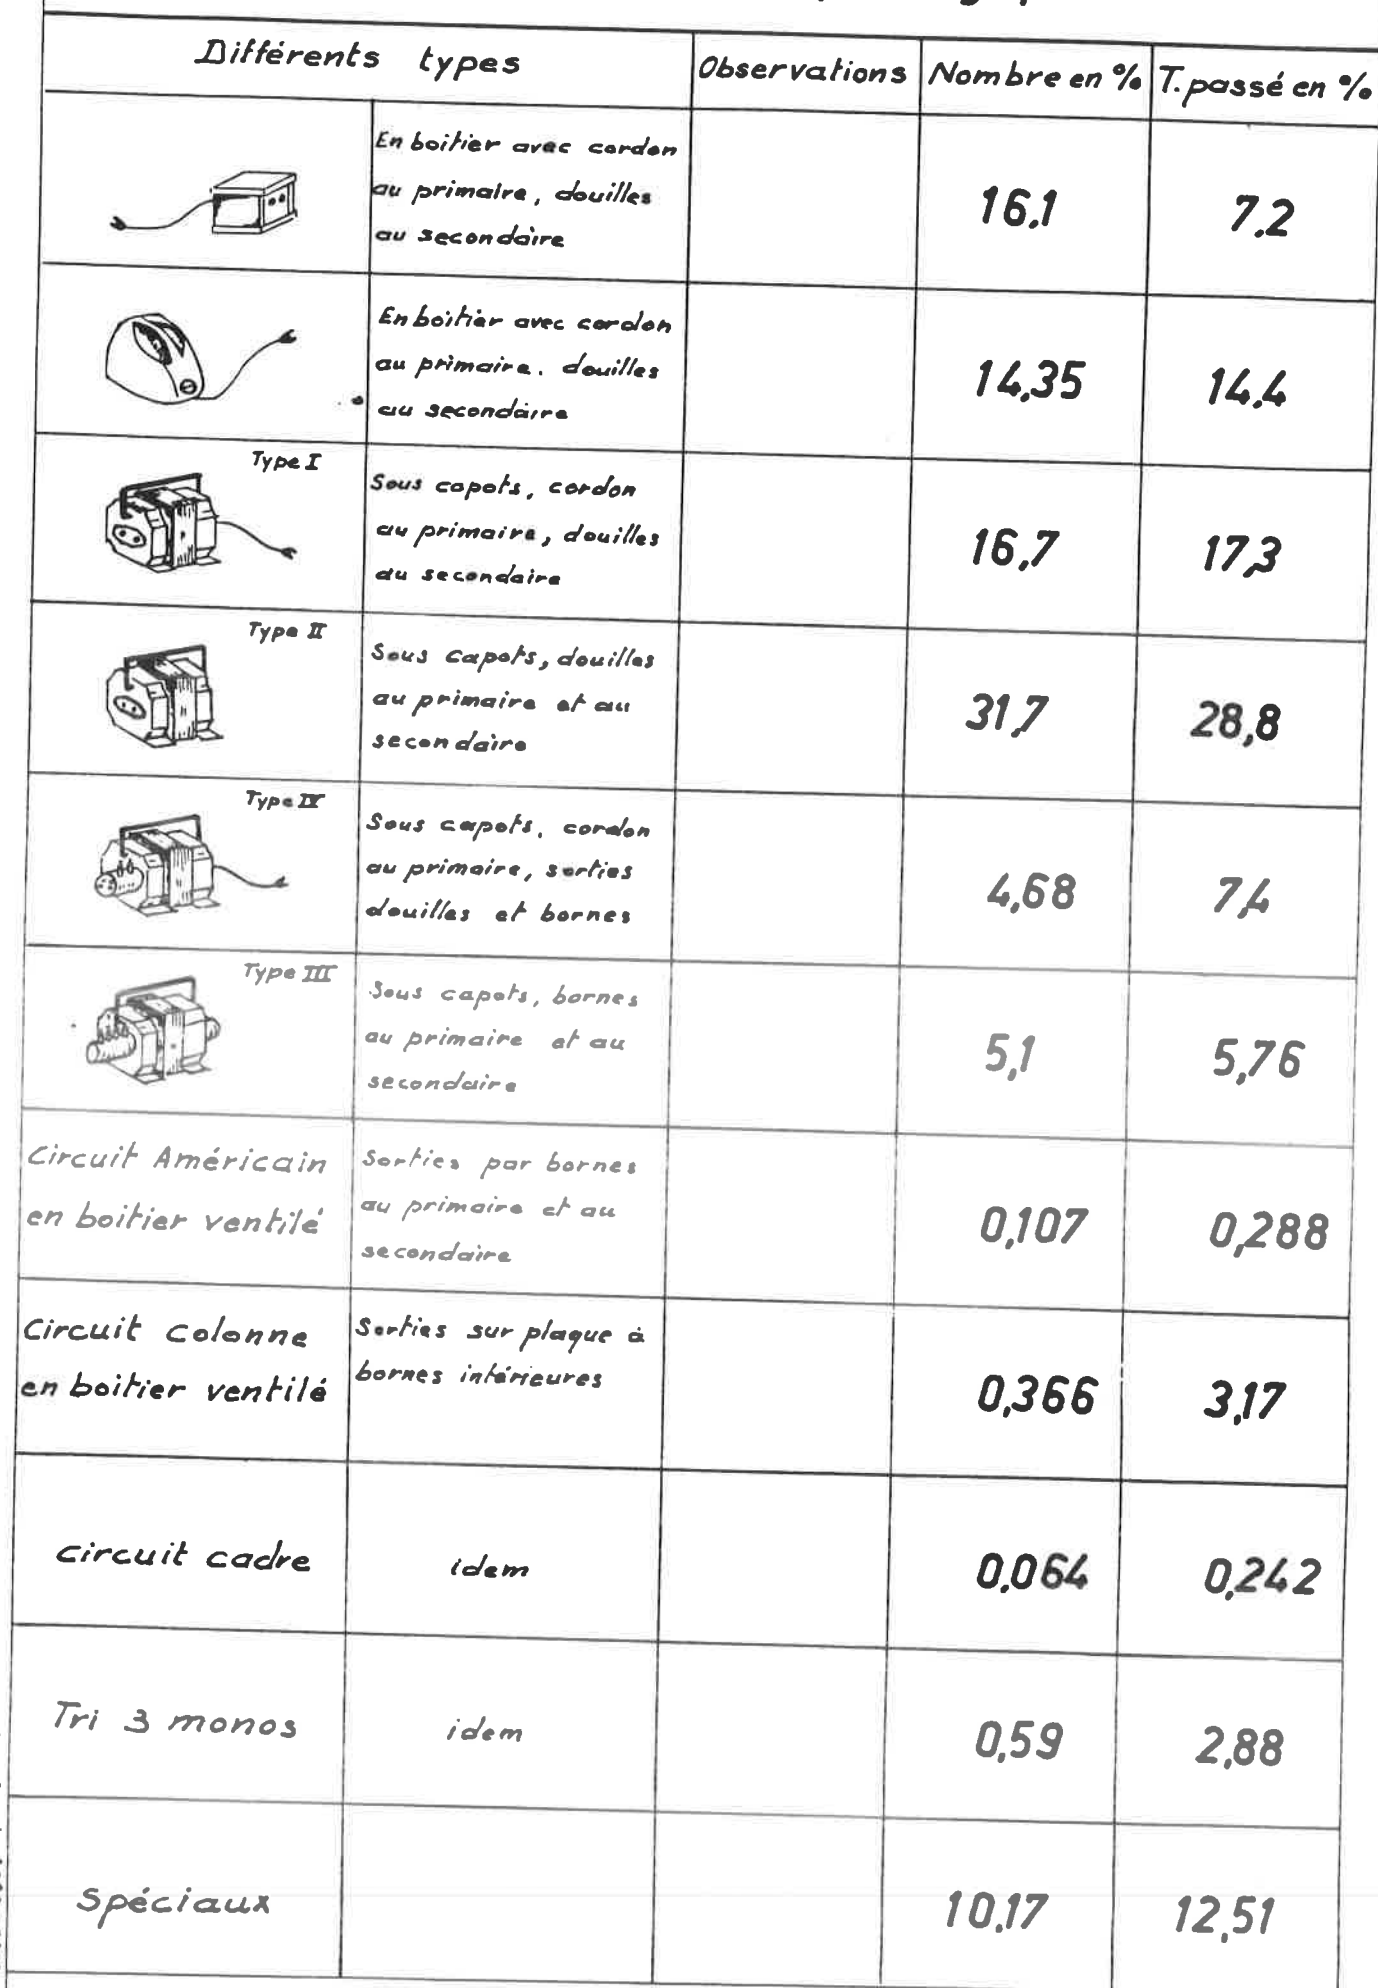 Différents types Observations Nombre en % T. passé en %
En boitier avec cordon
au primaire, douilles
au secondaire
16,1 7,2
En boitier avec cordon
au primaire. douilles
au secondaire
14,35 14,4
Type I
Sous capots, cordon
au primaire, douilles
au secondaire
16,7 17,3
Type II
Sous capots, douilles
au primaire et au
secondaire
31,7 28,8
Type IV
Sous capots, cordon
au primaire, sorties
douilles et bornes
4,68 7,4
Type III
Sous capots, bornes
au primaire et au
secondaire
5,1 5,76
Circuit Américain
en boitier ventilé
Sorties par bornes
au primaire et au
secondaire
0,107 0,288
Circuit colonne
en boitier ventilé
Sorties sur plaque à
bornes intérieures
0,366 3,17
circuit cadre idem 0,064 0,242
Tri 3 monos idem 0,59 2,88
Spéciaux 10,17 12,51